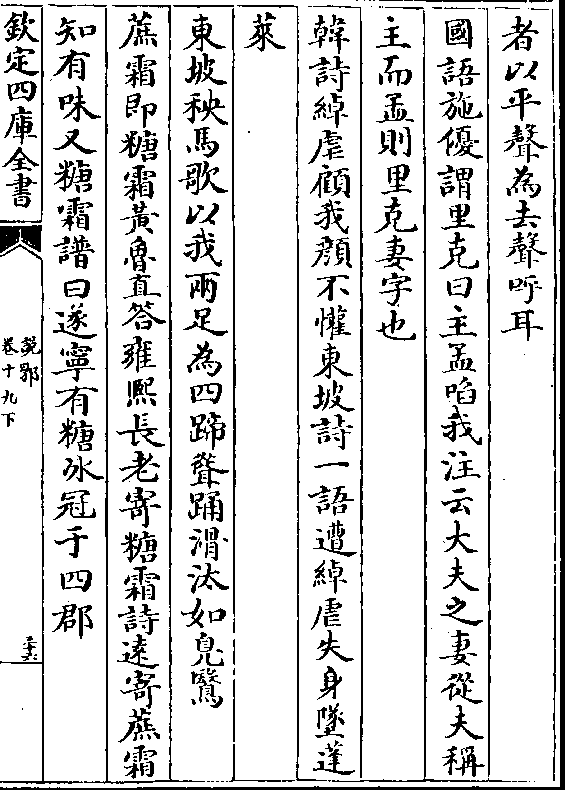 者以平聲為去聲呼耳
國語施優謂里克曰主孟啗我注云大夫之妻從夫稱
主而孟則里克妻字也
韓詩綽虐顧我顔不懽東坡詩一語遭綽虐失身墜蓬
萊
東坡秧馬歌以我兩足為四蹄聳踊滑汰如鳬鷖
蔗霜即糖霜黃魯直答雍熙長老寄糖霜詩遠寄蔗霜
知有味又糖霜譜曰遂寧有糖氷冠于四郡
欽定四庫全書
說郛
卷十九下
二十六